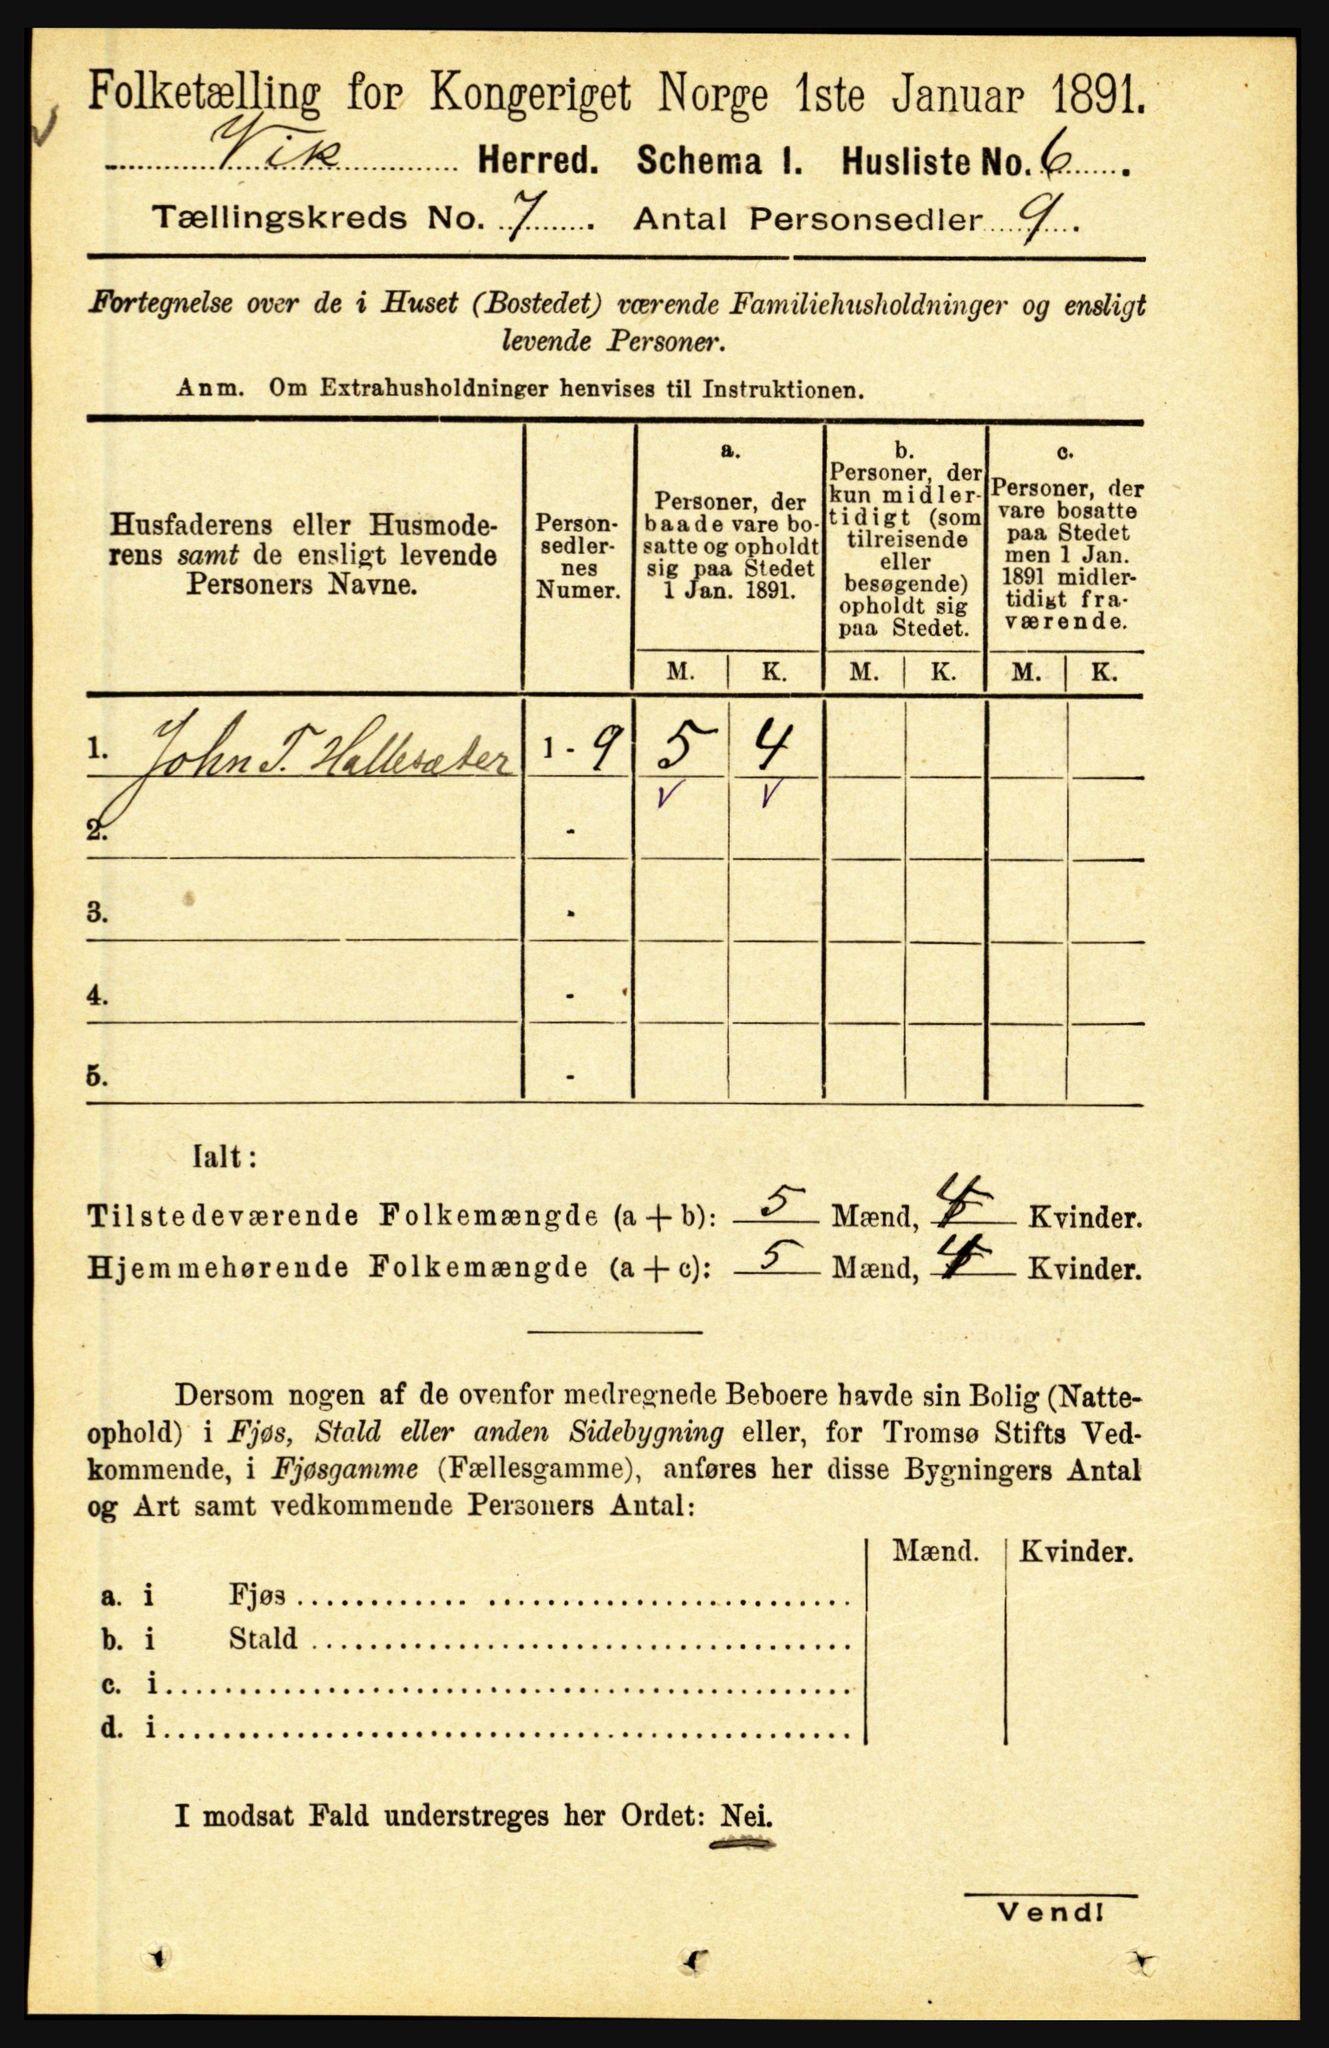 Folketælling for Kongeriget Norge 1ste Januar 1891.
Vik Herred. Schema I. Husliste No. 6.
Tællingskreds No. 7. Antal Personsedler 9.
Fortegnelse over de i Huset (Bostedet) værende Familiehusholdninger og ensligt
levende Personer.
Anm. Om Extrahusholdninger henvises til Instruktionen.
Husfaderens eller Husmode-
rens samt de ensligt levende
Personers Navne.
Person-
sedler-
nes
Numer.
a.
Personer, der
baade vare bo-
satte og opholdt
sig paa Stedet
1 Jan. 1891.
b.
Personer, der
kun midler-
tidigt (som
tilreisende
eller
besøgende)
opholdt sig
paa Stedet.
c.
Personer, der
vare bosatte
paa Stedet
men 1 Jan.
1891 midler-
tidigt fra-
værende.
M. K. M. K. M. K.
1. John T. Hallesæter 1 - 9 5 4
2. -
3. -
4. -
5. -
Ialt:
Tilstedeværende Folkemængde (a + b): 5 Mænd, 4 Kvinder.
Hjemmehørende Folkemængde (a + c): 5 Mænd, 4 Kvinder.
Dersom nogen af de ovenfor medregnede Beboere havde sin Bolig (Natte-
ophold) i Fjøs, Stald eller anden Sidebygning eller, for Tromsø Stifts Ved-
kommende, i Fjøsgamme (Fællesgamme), anføres her disse Bygningers Antal
og Art samt vedkommende Personers Antal:
Mænd. Kvinder.
a. i Fjøs
b. i Stald
c. i
d. i
I modsat Fald understreges her Ordet: Nei.
Vend!